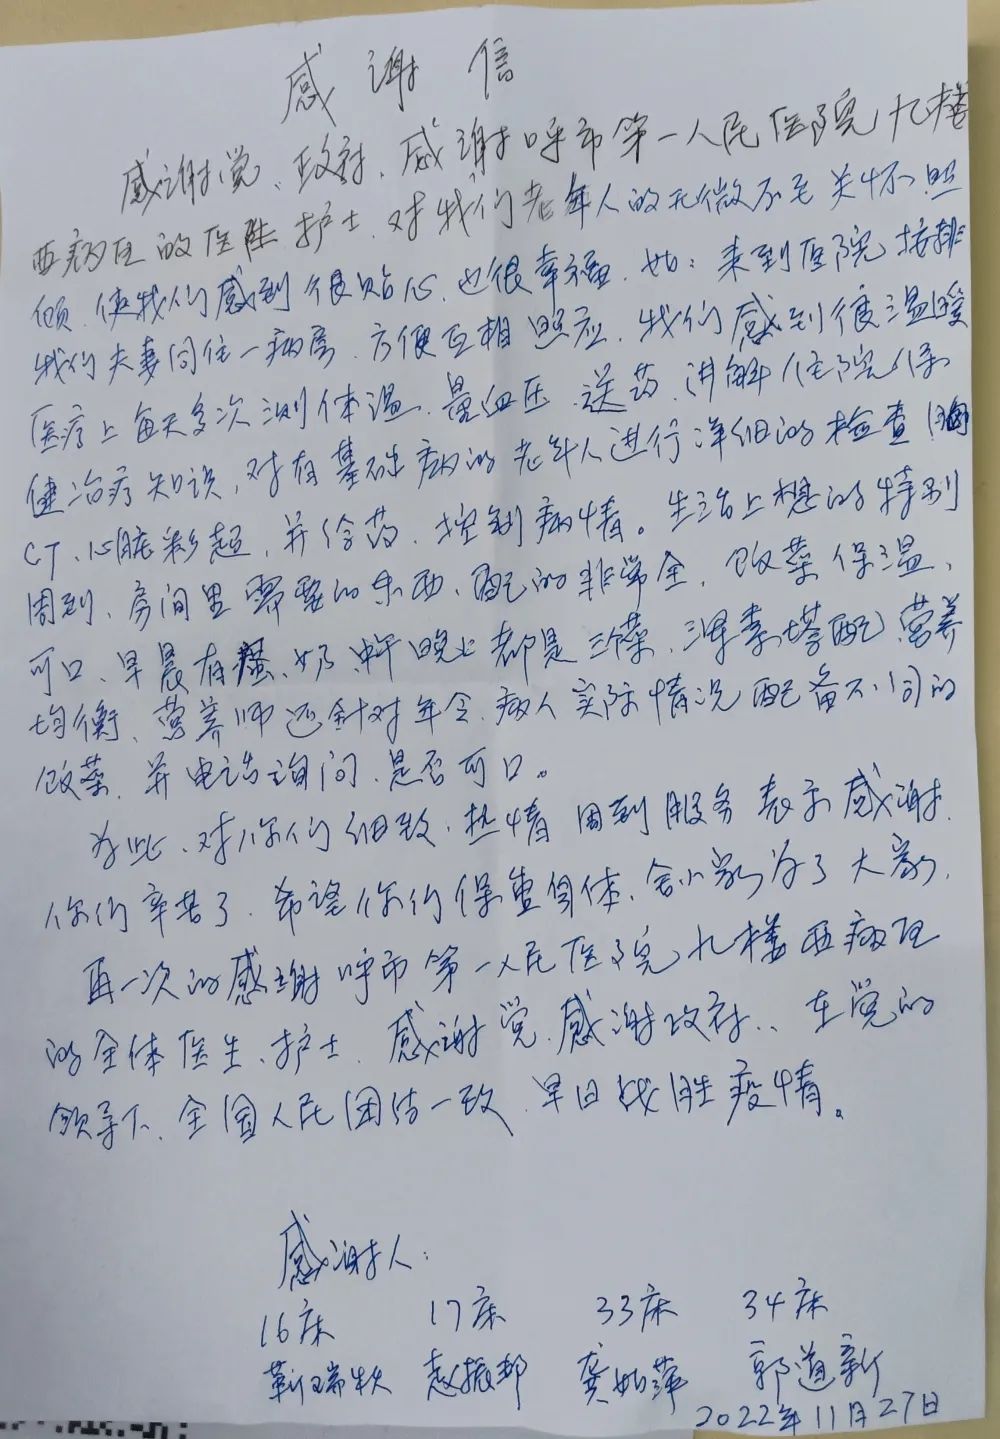 感谢信
感谢党、政府、感谢呼市第一人民医院九楼
西病区的医生护士.对我们老年人的无微不至关怀.照
顾.使我们感到很贴心.也很幸福.如:来到医院按排
我们夫妻同住一病房、方便互相照应.我们感到很温暖
医疗上每天多次测体温.量血压.送药.讲解住院保
健治疗知识,对有基础病的老年人进行详细的检查胸
CT、心脏彩超,并给药,控制病情。生活上想的特别
周到、房间里需要的东西、配的非常全,饭菜保温、
可口、早晨有蛋、奶.中午晚上都是三菜.荤素搭配.营养
均衡、营养师还针对年令.病人实际情况配备不同的
饭菜.并电话询问.是否可口。
为此、对你们细致.热情周到服务表示感谢.
你们辛苦了.希望你们保重身体.舍小家为了大家,
再一次的感谢呼市第一人民医院九楼西病理
的全体医生、护士.感谢党.感谢政府、、在党的
领导下、全国人民团结一致.早日战胜疫情。
感谢人:
16床 17床 33床 34床
靳瑞 赵振邦 龚如萍 郭道新
2022年11月27日